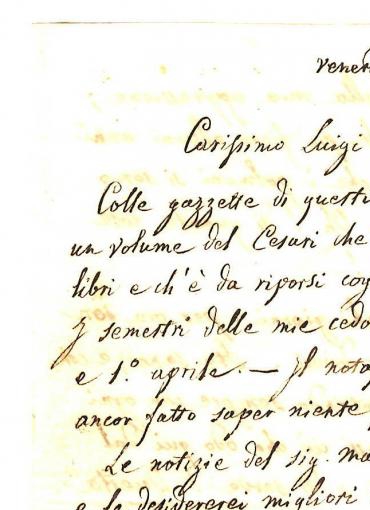 vener
Carissimo Luigi
Colle gazzette di questi
un volume del Cesari che
libri e ch'è da riporsi co
semestri delle mie cedo
e 1.º aprile. — Il nota
ancor fatto saper niente
Le notizie del sig. ma
e le desidererei migliori